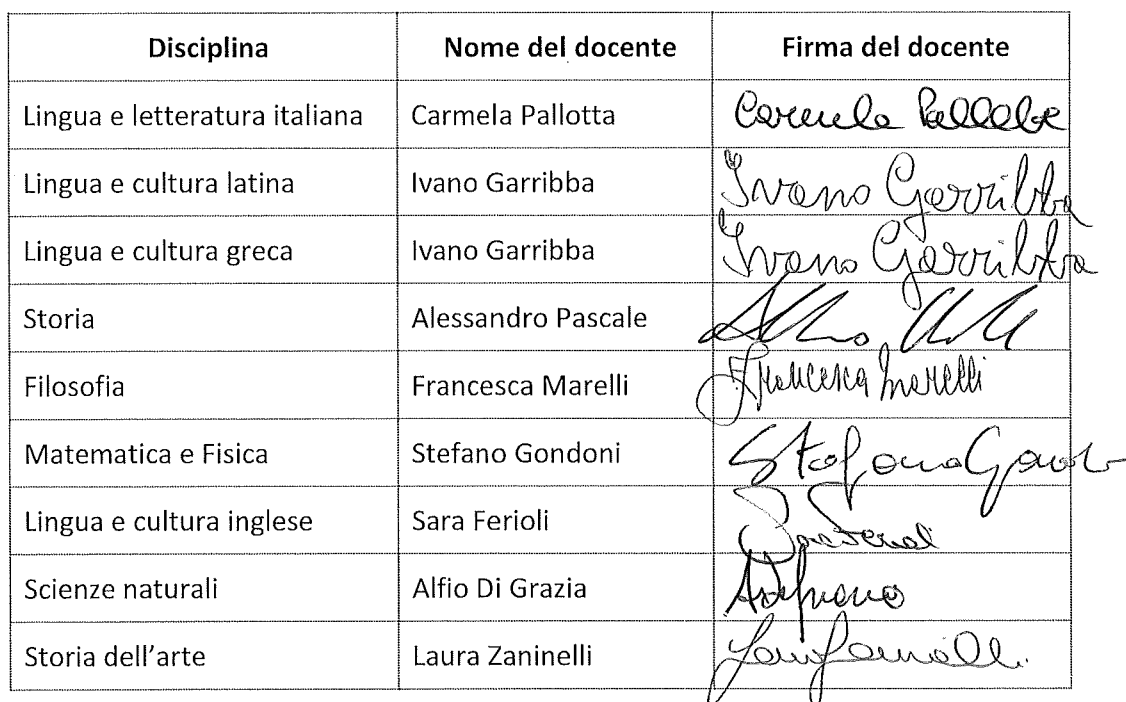 Disciplina Nome del docente Firma del docente
Lingua e letteratura italiana Carmela Pallotta
Lingua e cultura latina Ivano Garribba Ivano Garribba
Lingua e cultura greca Ivano Garribba Ivano Garribba
Storia Alessandro Pascale
Filosofia Francesca Marelli Francesca Marelli
Matematica e Fisica Stefano Gondoni
Lingua e cultura inglese Sara Ferioli
Scienze naturali Alfio Di Grazia
Storia dell'arte Laura Zaninelli